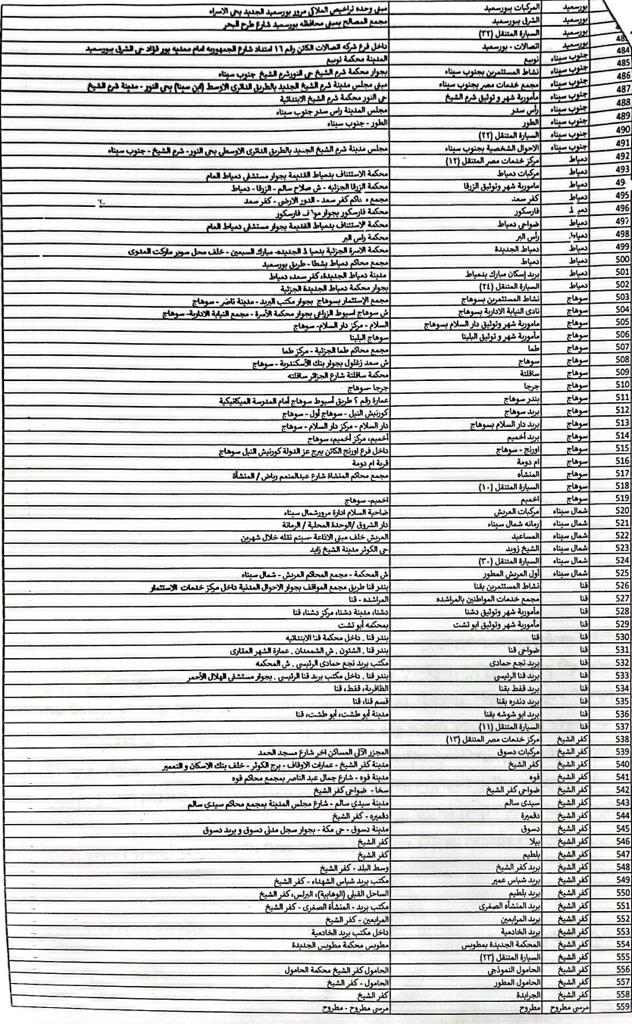 بورسعيد المركبات ببورسعيد مبنى وحدة تراخيص الملاكى مرور بورسعيد الجديد بحى الاسراء
بورسعيد الشرق ببورسعيد مجمع المصالح بمبنى محافظه بورسعيد شارع طرح البحر
بورسعيد السيارة المتنقل (٣٢)
483 بورسعيد اتصالات - بورسعيد داخل فرع شركه اتصالات الكائن رقم ١٦ امتداد شارع الجمهوريه امام معديه بور فؤاد حى الشرق ببورسعيد
484 جنوب سيناء نويبع المدينة محكمة نويبع
485 جنوب سيناء نشاط المستثمرين بجنوب سيناء بجوار محكمة شرم الشيخ حى النورشرم الشيخ جنوب سيناء
486 جنوب سيناء مجمع خدمات مصر بجنوب سيناء مبنى مجلس مدينة شرم الشيخ الجديد بالطريق الدائرى الاوسط (ابن سينا) بحى النور - مدينة شرم الشيخ
487 جنوب سيناء مأمورية شهر و توثيق شرم الشيخ حى النور محكمة شرم الشيخ الابتدائية
488 جنوب سيناء رأس سدر مجلس المدينة راس سدر جنوب سيناء
489 جنوب سيناء الطور الطور - جنوب سيناء
490 جنوب سيناء السيارة المتنقل (٢٢)
491 جنوب سيناء الاحوال الشخصية بجنوب سيناء مجلس مدينة شرم الشيخ الجديد بالطريق الدائرى الاوسطى بحى النور- شرم الشيخ - جنوب سيناء
492 دمياط مركز خدمات مصر المتنقل (١٢)
493 دمياط مركبات دمياط محكمة الاستئناف بدمياط القديمة بجوار مستشفى دمياط العام
49 دمياط مامورية شهر وتوثيق الزرقا محكمة الزرقا الجزئيه - ش صلاح سالم - الزرقا - دمياط
495 دمياط كفر سعد مجمع محاكم كفر سعد - الدور الارضى - كفر سعد
496 دمياط فارسكور محكمة فارسكور بجوار موقف فارسكور
497 دمياط ضواحى دمياط محكمة الاستئناف بدمياط القديمة بجوار مستشفى دمياط العام
498 دمياط رأس البر محكمة رأس البر
499 دمياط دمياط الجديدة محكمة الاسرة الجزئية بدمياط الجديده- مبارك السبعين - خلف محل سوبر ماركت المدوى
500 دمياط دمياط مجمع محاكم دمياط بشطا - طريق بورسعيد
501 دمياط بريد إسكان مبارك بدمياط مدينة دمياط الجديدة، كفر سعد، دمياط
502 دمياط السيارة المتنقل (٢٤) بجوار محكمة دمياط الجديدة الجزئية
503 سوهاج نشاط المستثمرين بسوهاج مجمع الإستثمار بسوهاج بجوار مكتب البريد - مدينة ناصر - سوهاج
504 سوهاج نادى النيابة الادارية بسوهاج ش سوهاج اسيوط الزراعى بجوار محكمة الأسرة - مجمع النيابة الادارية- سوهاج
505 سوهاج مامورية شهر وتوثيق دار السلام بسوهاج السلام - مركز دار السلام- سوهاج
506 سوهاج مأمورية شهر و توثيق البلينا سوهاج البلينا
507 سوهاج طما مجمع محاكم طما الجزئية - مركز طما
508 سوهاج سوهاج ش سعد زغلول بجوار بنك الأسكندرية - سوهاج
509 سوهاج ساقلتة محكمة ساقلتة شارع الجزائر ساقلته
510 سوهاج جرجا جرجا -سوهاج
511 سوهاج بندر سوهاج عمارة رقم ٢ طريق أسيوط سوهاج أمام المدرسة الميكانيكية
512 سوهاج بريد سوهاج كورنيش النيل - سوهاج أول - سوهاج
513 سوهاج بريد دار السلام بسوهاج دار السلام - مركز دار السلام - سوهاج
514 سوهاج بريد أخميم أخميم، مركز أخميم، سوهاج
515 سوهاج اورنج - سوهاج داخل فرع اورنج الكائن ببرج عز الدولة كورنيش النيل سوهاج
516 سوهاج ام دومة قرية ام دومة
517 سوهاج المنشأه مجمع محاكم المنشاة شارع عبدالمنعم رياض / المنشأة
518 سوهاج السيارة المتنقل (١٠)
519 سوهاج اخميم اخميم- سوهاج
520 شمال سيناء مركبات العريش ضاحية السلام ادارة مرورشمال سيناء
521 شمال سيناء رمانه شمال سيناء دار الشروق /الوحدة المحلية / الرمانة
522 شمال سيناء المساعيد العريش خلف مبنى الاذاعة -سيتم نقله خلال شهرين
523 شمال سيناء الشيخ زويد حى الكوثر مدينة الشيخ زايد
524 شمال سيناء السيارة المتنقل (٣٠)
525 شمال سيناء أول العريش المطور ش المحكمة - مجمع المحاكم العريش - شمال سيناء
526 قنا نشاط المستثمرين بقنا بندر قنا طريق مجمع المواقف بجوار الاحوال المدنية داخل مركز خدمات الاستثمار
527 قنا مجمع خدمات المواطنين بالمراشده المراشده - قنا
528 قنا مأمورية شهر وتوثيق دشنا دشنا، مدينة دشنا، مركز دشنا، قنا
529 قنا مأمورية شهر وتوثيق ابو تشت بمحكمه أبو تشت
530 قنا قنا بندر قنا . داخل محكمة قنا الابتدائيه
531 قنا ضواحى قنا بندر قنا . الشئون . ش الشمعدان . عمارة الشهر العقارى
532 قنا بريد نجع حمادى مكتب بريد نجع حمادى الرئيسى . ش المحكمه
533 قنا بريد قنا الرئيسى بندر قنا . داخل مكتب بريد قنا الرئيسى . بجوار مستشفى الهلال الأحمر
534 قنا بريد قفط بقنا الظافرية، قفط، قنا
535 قنا بريد دندره بقنا قسم قنا، قنا
536 قنا بريد ابو شوشه بقنا مدينة أبو طشت، أبو طشت، قنا
537 قنا السيارة المتنقل (١١)
538 كفر الشيخ مركز خدمات مصر المتنقل (١٣)
539 كفر الشيخ مركبات دسوق المجزر الآلى المساكن اخر شارع مسجد الحمد
540 كفر الشيخ كفر الشيخ مدينة كفر الشيخ - عمارات الاوقاف - برج الكوثر - خلف بنك الاسكان و التعمير
541 كفر الشيخ فوه مدينة فوه - شارع جمال عبد الناصر بمجمع محاكم فوه
542 كفر الشيخ ضواحى كفر الشيخ سخا - ضواحى كفر الشيخ
543 كفر الشيخ سيدى سالم مدينة سيدي سالم - شارع مجلس المدينة بمجمع محاكم سيدي سالم
544 كفر الشيخ دقميرة دقميره - كفر الشيخ
545 كفر الشيخ دسوق مدينة دسوق - حى مكة - بجوار سجل مدنى دسوق و بريد دسوق
546 كفر الشيخ بيلا كفر الشيخ
547 كفر الشيخ بلطيم كفر الشيخ
548 كفر الشيخ بريد كفر الشيخ وسط البلد - كفر الشيخ
549 كفر الشيخ بريد شباس عمير مكتب بريد شباس الشهداء - كفر الشيخ
550 كفر الشيخ بريد بلطيم الساحل القبلى (الوهابية)، البرلس، كفر الشيخ
551 كفر الشيخ بريد المنشأه الصغرى مكتب بريد - المنشأة الصغرى - كفر الشيخ
552 كفر الشيخ بريد المرابعين المرابعين - كفر الشيخ
553 كفر الشيخ بريد الخادمية داخل مكتب بريد الخادمية
554 كفر الشيخ المحكمة الجديدة بمطوبس مطوبس محكمة مطوبس الجديدة
555 كفر الشيخ السيارة المتنقل (٢٣)
556 كفر الشيخ الحامول النموذجى الحامول كفر الشيخ محكمة الحامول
557 كفر الشيخ الحامول المطور الحامول - كفر الشيخ
558 كفر الشيخ الجرايدة كفر الشيخ
559 مرسى مطروح مطروح مرسى مطروح - مطروح